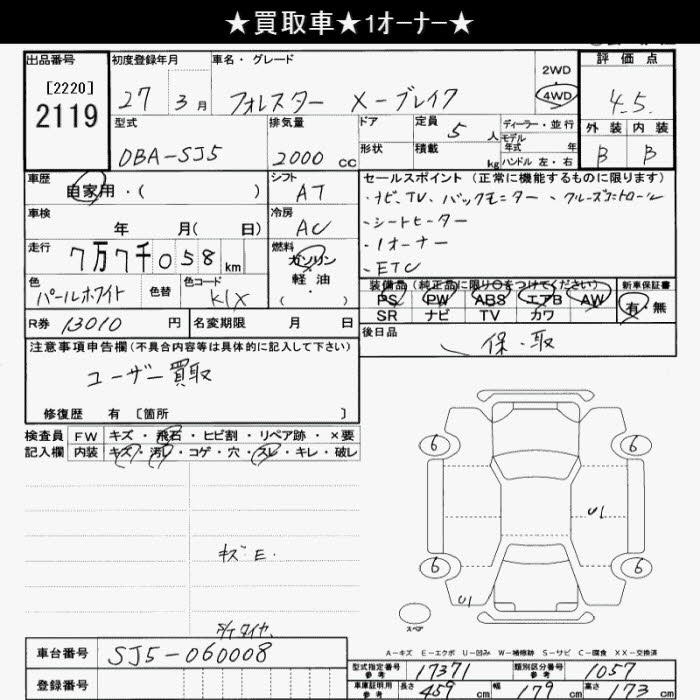 ★買取車★1オーナー★
出品番号 初度登録年月 車名・グレード 2WD 評価点
[2220] 27 3月 フォレスター X-ブレイク 4WD 4.5
2119
型式 排気量 ドア 定員 5人 ディーラー・並行 外装 内装
モデル年式 年
DBA-SJ5 2000cc 形状 積載 kg ハンドル 左・右 B B
車歴 自家用・( ) シフト AT セールスポイント (正常に機能するものに限ります)
・ナビ、TV、バックモニター、クルーズコントロール
車検 年 月( 日) 冷房 AC ・シートヒーター
・1オーナー
走行 7万7千058km 燃料 ガソリン 軽油 ( ・ ) ・ETC
色 パールホワイト 色替 色コード K1X 装備品 (純正品に限り○をつけてください) 新車保証書
PS PW ABS エアB AW 有 無
SR ナビ TV カワ
R券 13010円 名変期限 月 日 後日品 保・取
注意事項申告欄(不具合内容等は具体的に記入して下さい)
ユーザー買取
修復歴 有 [箇所 ]
検査員記入欄 FW キズ・飛石・ヒビ割・リペア跡・×要
内装 キズ・汚レ・コゲ・穴・スレ・キレ・破レ
6 6
U1
キズE.
6 6
U1
スペア
タイヤ
A-キズ E-エクボ U-凹み W-補修跡 S-サビ C-腐食 XX-交換済
車台番号 SJ5-060008
型式指定番号 参考 17371 類別区分番号 参考 1057
登録番号
車庫証明用 参考 長さ 459cm 幅 179cm 高さ 173cm